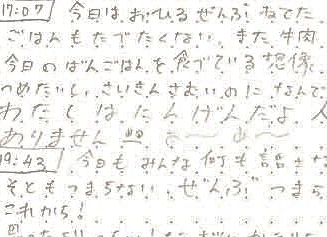 17:07 今日は おひる ぜんぶ ねてた
ごはんも たべたくない。また 牛肉
今日の ばんごはんを 食べている 想像
つめたいし、さいきん さむいのに なんで
わたしは にんげんだよ 人
ありません
19:43 今日も みんな 何も 話さな
そとも つまらない。ぜんぶ つまら
これから!